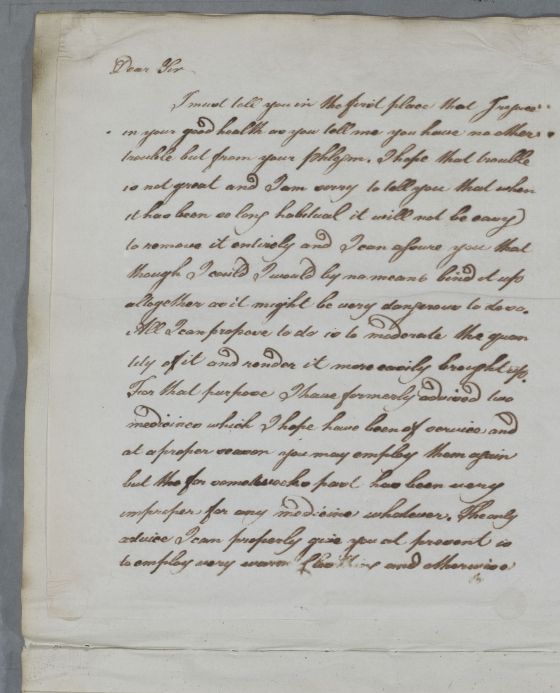 Dear Sir
I must tell you in the first place that I rejoice
in your good health as you tell me you have no other
trouble but from your Phlegm. I hope that trouble
is not great and I am sorry to tell you that when
it has been so long habitual it will not be easy
to remove it entirely and I can assure you that
though I could I would by no means bind it up
altogether as it might be very dangerous to do so.
All I can propose to do is to moderate the quan
tity of it and render it more easily brought up.
For that purpose I have formerly advised two
medicines which I hope have been of service and
at a proper season you may employ them again
but the for some weeks past has been very
improper for any medicine whatever. The only
advice I can properly give you at present is
to employ very warm Cloathing and otherwise